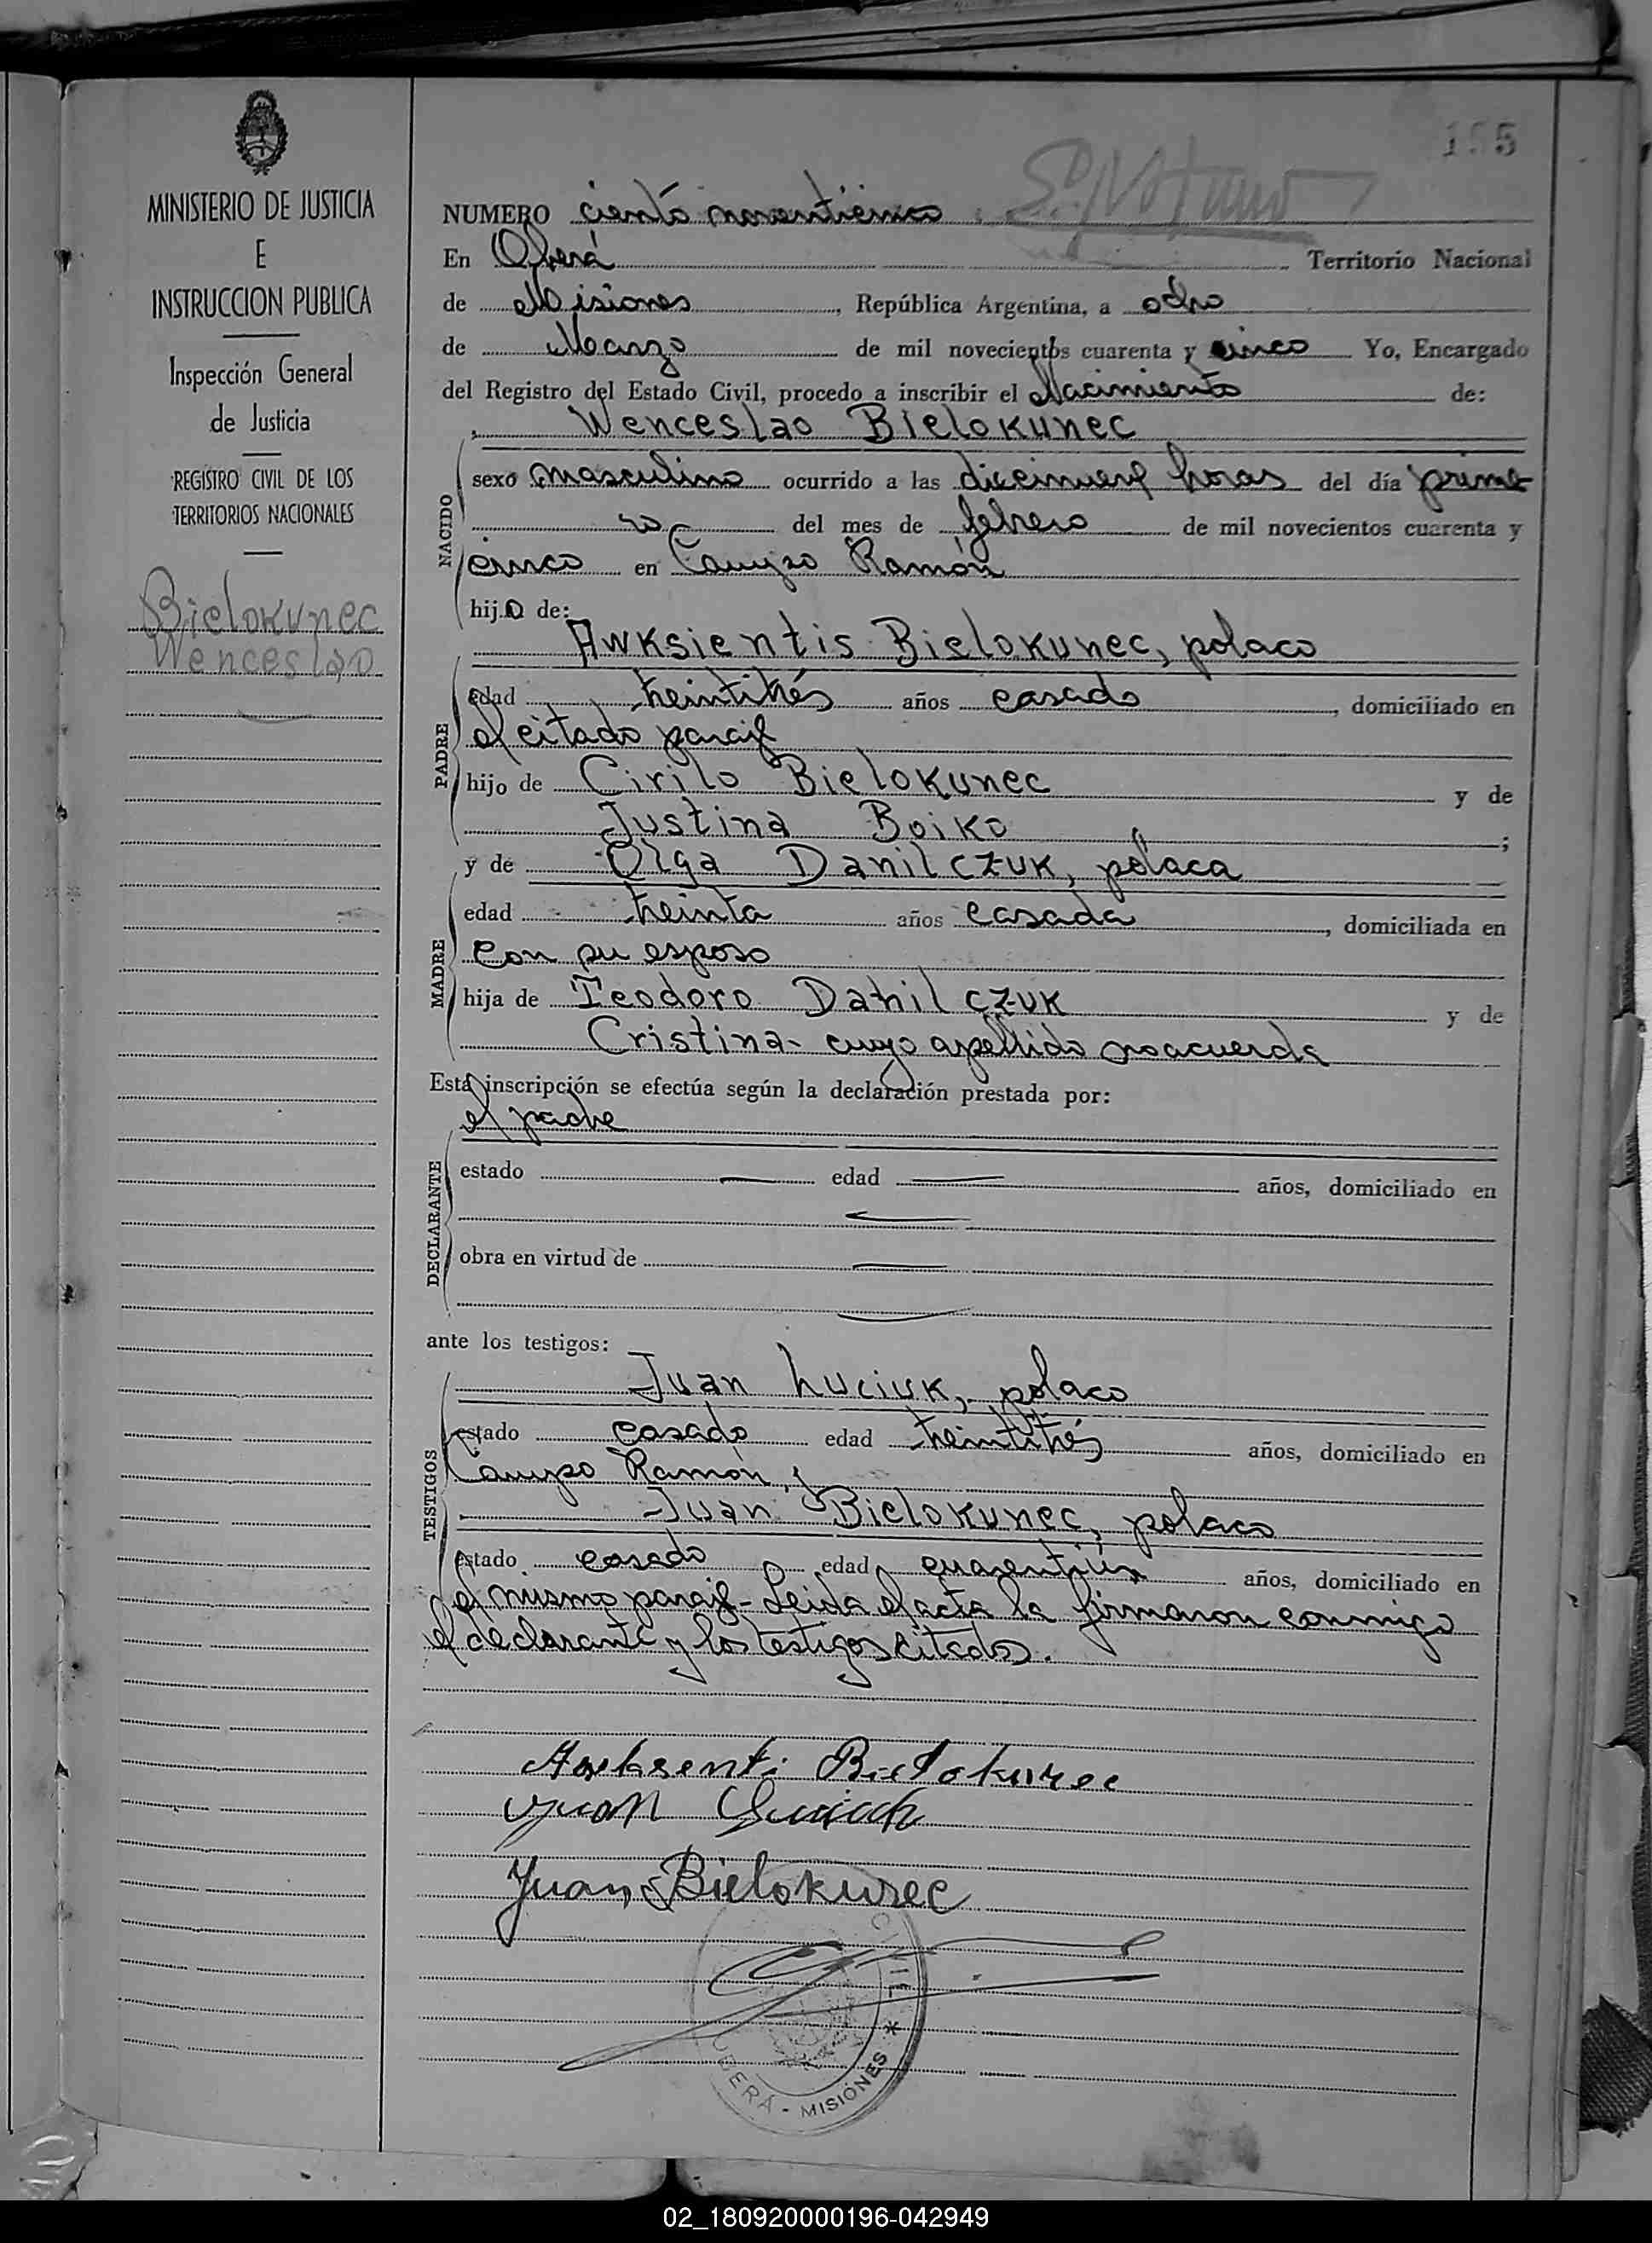 MINISTERIO DE JUSTICIA
E
INSTRUCCION PUBLICA
Inspección General
de Justicia
REGISTRO CIVIL DE LOS
TERRITORIOS NACIONALES
Bielokunec
Wenceslao
NUMERO ciento noventicinco
En Oberá Territorio Nacional
de Misiones, República Argentina, a ocho
de Marzo de mil novecientos cuarenta y cinco Yo, Encargado
del Registro del Estado Civil, procedo a inscribir el Nacimiento de:
Wenceslao Bielokunec
NACIDO
sexo masculino ocurrido a las diecinueve horas del día prime-
ro del mes de febrero de mil novecientos cuarenta y
cinco en Campo Ramón
hijo de:
Awksientis Bielokunec, polaco
PADRE
edad treintitrés años casado, domiciliado en
el citado paraje
hijo de Cirilo Bielokunec y de
Justina Boiko;
y de Olga Danilczuk, polaca
MADRE
edad treinta años casada, domiciliada en
con su esposo
hija de Teodoro Danilczuk y de
Cristina- cuyo apellido no acuerda
Esta inscripción se efectúa según la declaración prestada por:
el padre
DECLARANTE
estado — edad — años, domiciliado en
—
obra en virtud de —
—
ante los testigos:
Juan Luciuk, polaco
TESTIGOS
estado casado edad treintitrés años, domiciliado en
Campo Ramón y
Juan Bielokunec, polaco
estado casado edad cuarentiún años, domiciliado en
el mismo paraje- Leida el acta la firmaron conmigo
el declarante y los testigos citados.
Awksenti Bielokunec
Juan
Juan Bielokurec
CIVIL
OBERÁ - MISIONES *
02_180920000196-042949